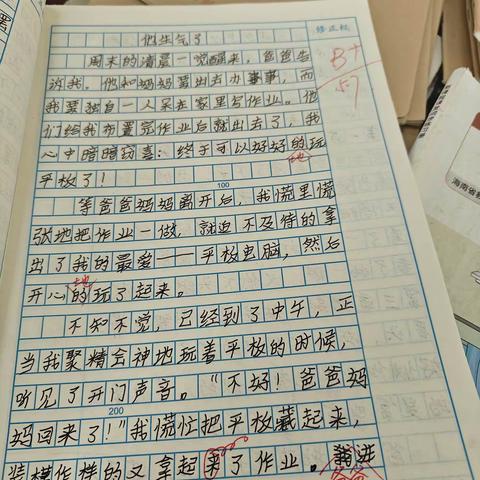 他生气了
修正栏
周末的清晨一觉醒来，爸爸告
诉我，他和妈妈要出去办事事，而
我要独自一人呆在家里写作业。他
们给我布置完作业后就出去了，我
心中暗暗窃喜：终于可以好好的玩
地
平板了！
100
等爸爸妈妈离开后，我慌里慌
张地把作业一做，就迫不及待的拿
出了我的最爱——平板电脑，然后
地
开心的玩了起来。
不知不觉，已经到了中午，正
当我聚精会神地玩着平板的时候，
听见了开门声音。“不好！爸爸妈
200
妈回来了！”我慌忙把平板藏起来，
装模作样的又拿起来了作业。我进
B+
57
海南省